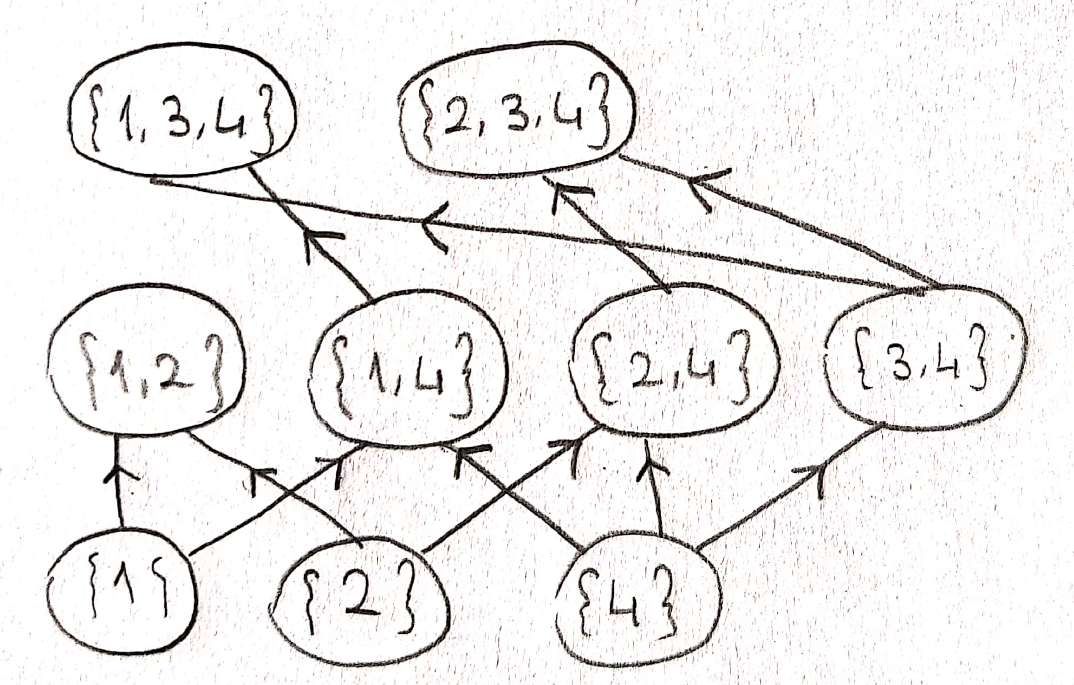 {1,3,4} {2,3,4}
{1,2} {1,4} {2,4} {3,4}
{1{ {2} {4}